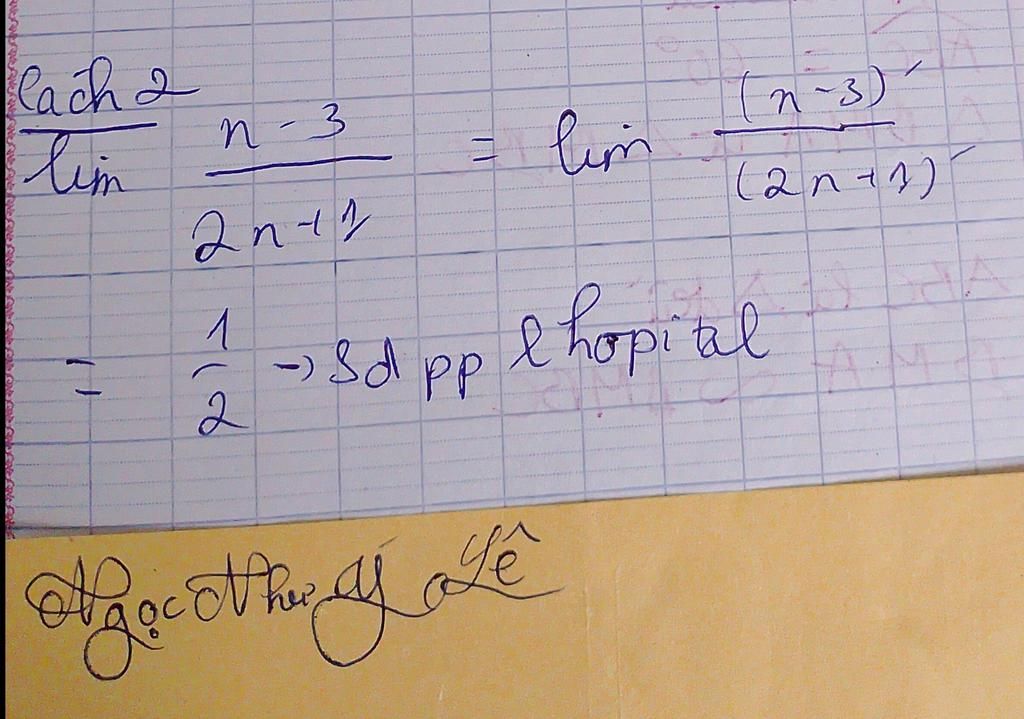 Cách 2
lim n - 3 / 2n + 1 = lim (n - 3)' / (2n + 1)'
= 1 / 2 → Sd pp lhopital
Ngọc Như Ý Lê